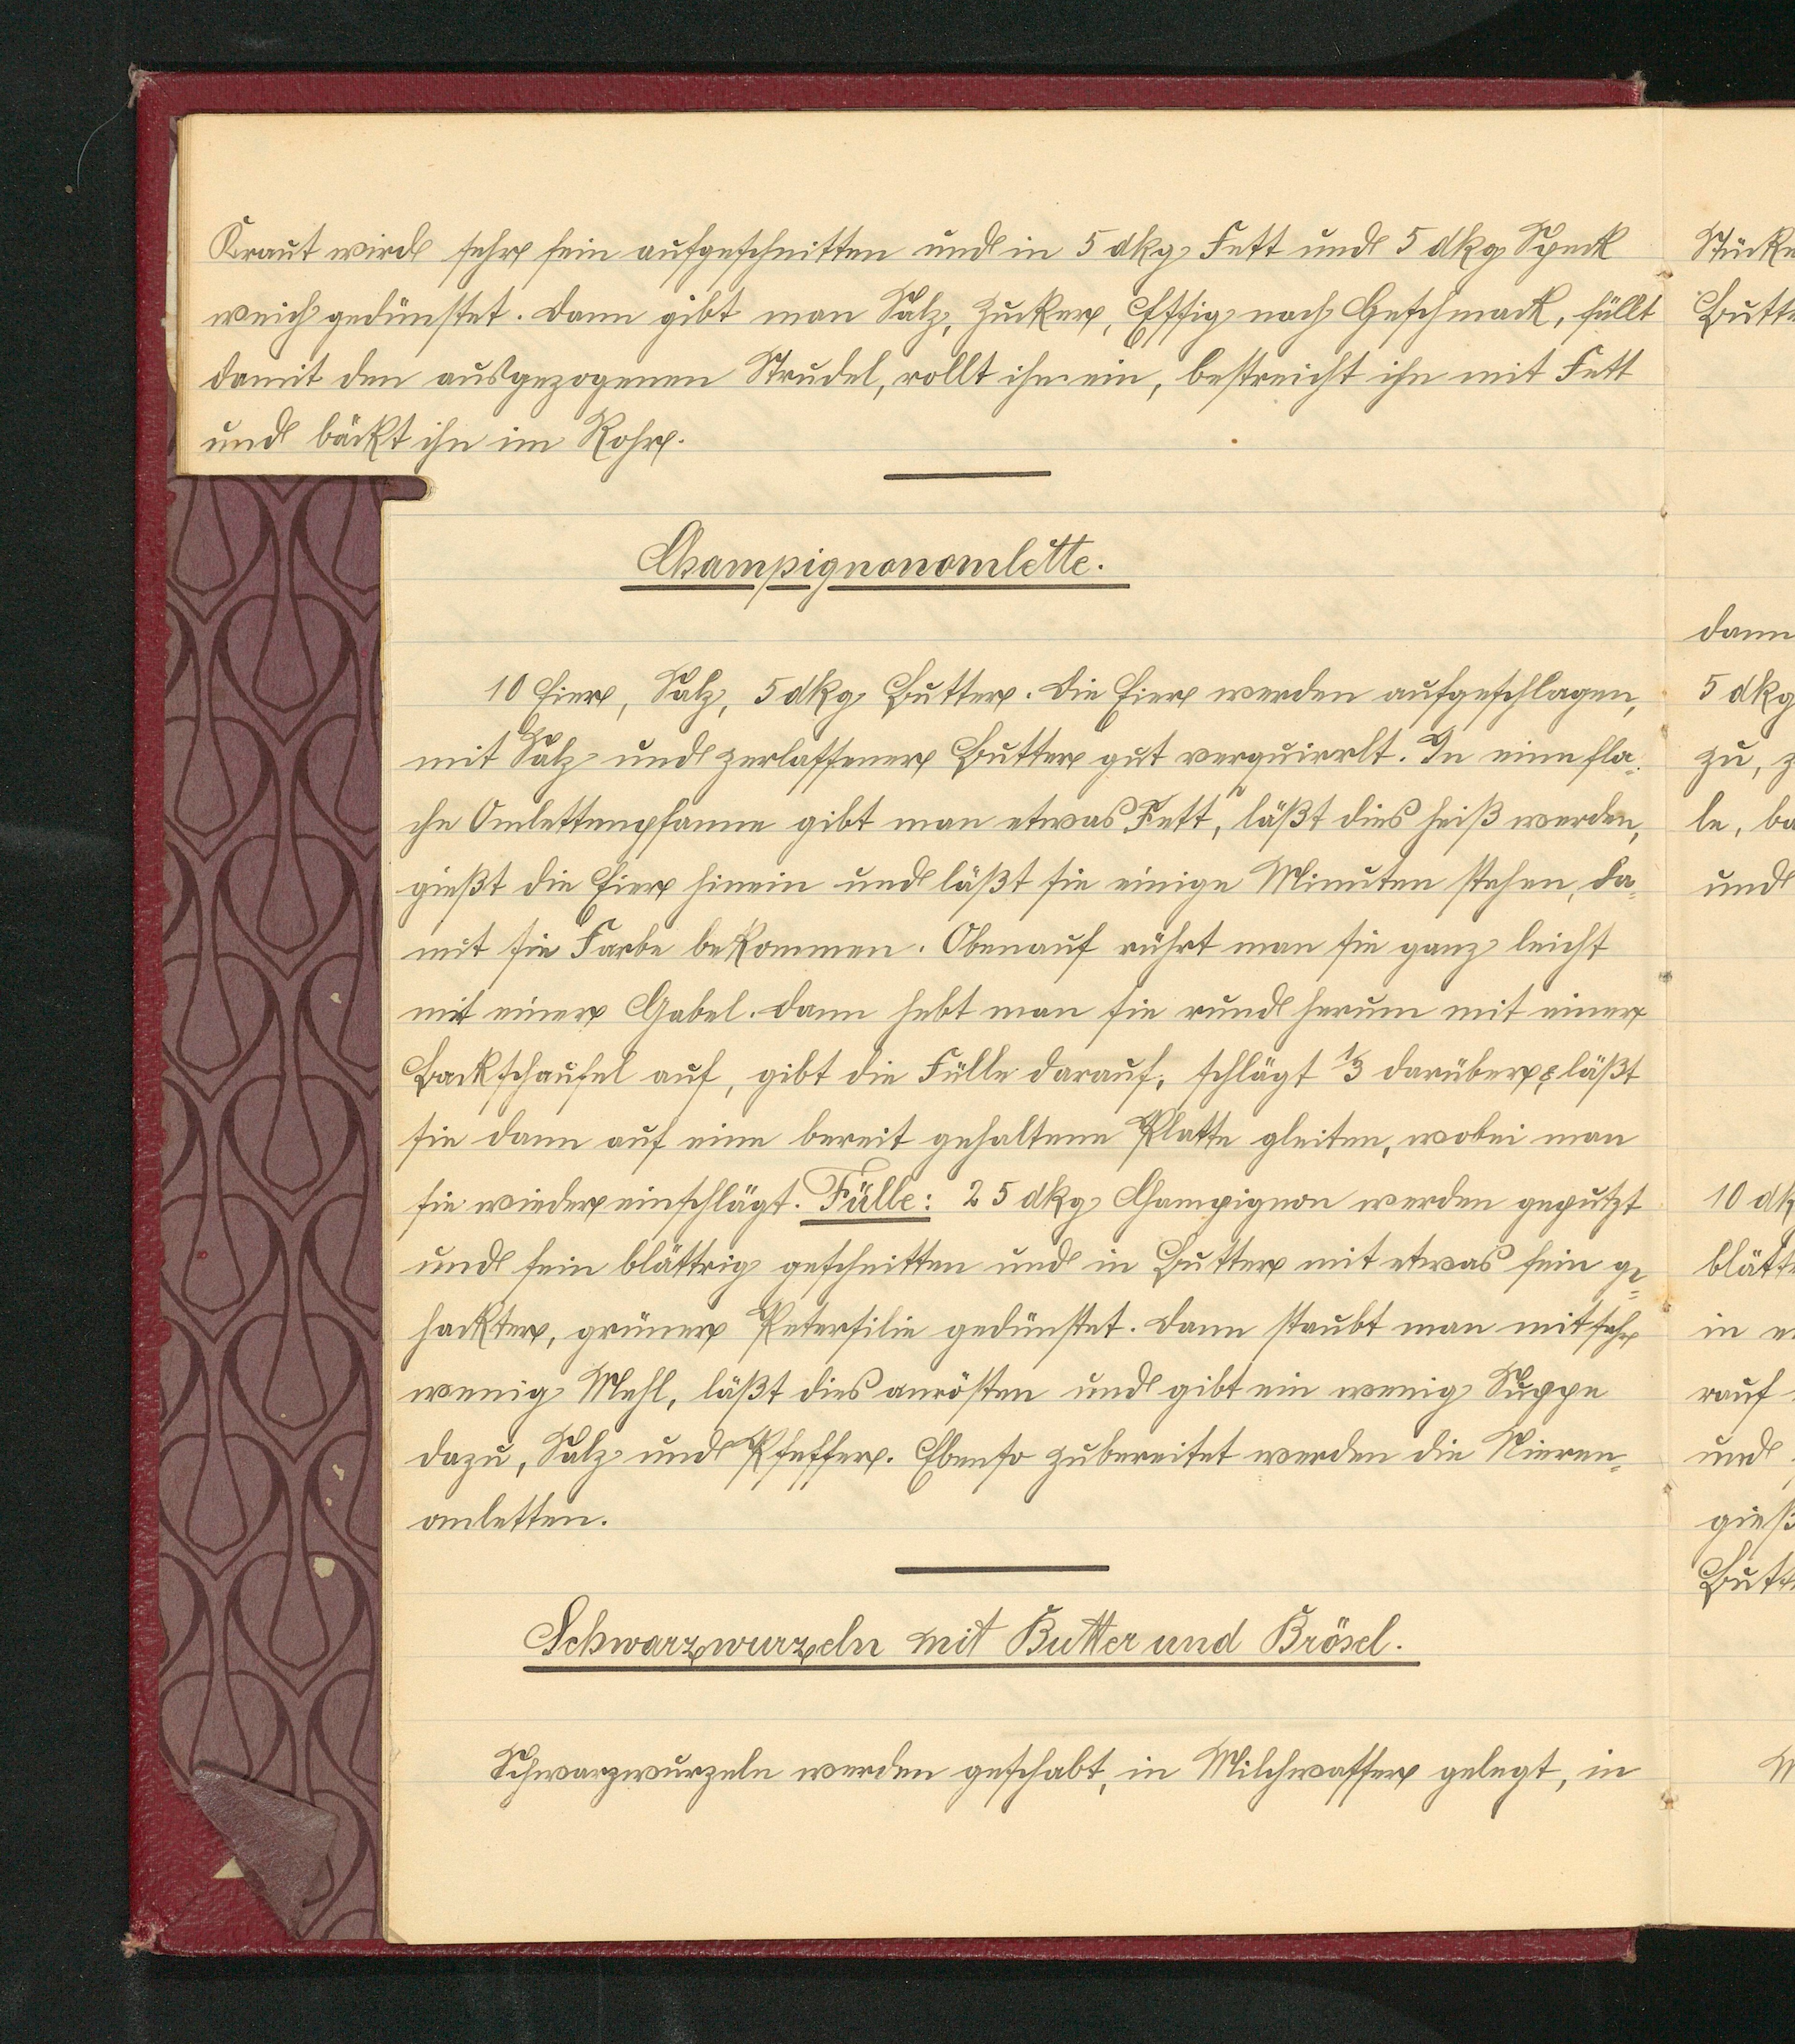 Kraut wird sehr fein aufgeschnitten und in 5 dkg Fett und 5 dkg Speck
weich gedünstet. Dann gibt man Salz, Zucker, Essig nach Geschmack, füllt
damit den ausgezogenen Strudel, rollt ihn ein, bestreicht ihn mit Fett
und bäckt ihn im Rohr.
Champignonomlette.
10 Eier, Salz, 5 dkg Butter. Die Eier werden aufgeschlagen,
mit Salz und zerlassener Butter gut verquirrlt. In eine fla-
che Omlettenpfanne gibt man etwas Fett, läßt dies heiß werden,
gießt die Eier hinein und läßt sie einige Minuten stehen, da-
mit sie Farbe bekommen. Obenauf rührt man sie ganz leicht
mit einer Gabel. Dann hebt man sie rund herum mit einer
Backschaufel auf, gibt die Fülle darauf, schlägt 1/3 darüber & läßt
sie dann auf eine bereit gehaltene Platte gleiten, wobei man
sie wieder einschlägt. Fülle: 25 dkg Champignon werden geputzt
und fein blättrig geschnitten und in Butter mit etwas fein ge-
hackter, grüner Petersilie gedünstet. Dann staubt man mit sehr
wenig Mehl, läßt dies anrösten und gibt ein wenig Suppe
dazu, Salz und Pfeffer. Ebenso zubereitet werden die Nieren-
omletten.
Schwarzwurzeln mit Butter und Brösel.
Schwarzwurzeln werden geschabt, in Milchwasser gelegt, in
Stücke
Butte
dann
5 dkg
zu, z
le, ba
und
10 dk
blätt
in e
rauf
und
gieß
Butt